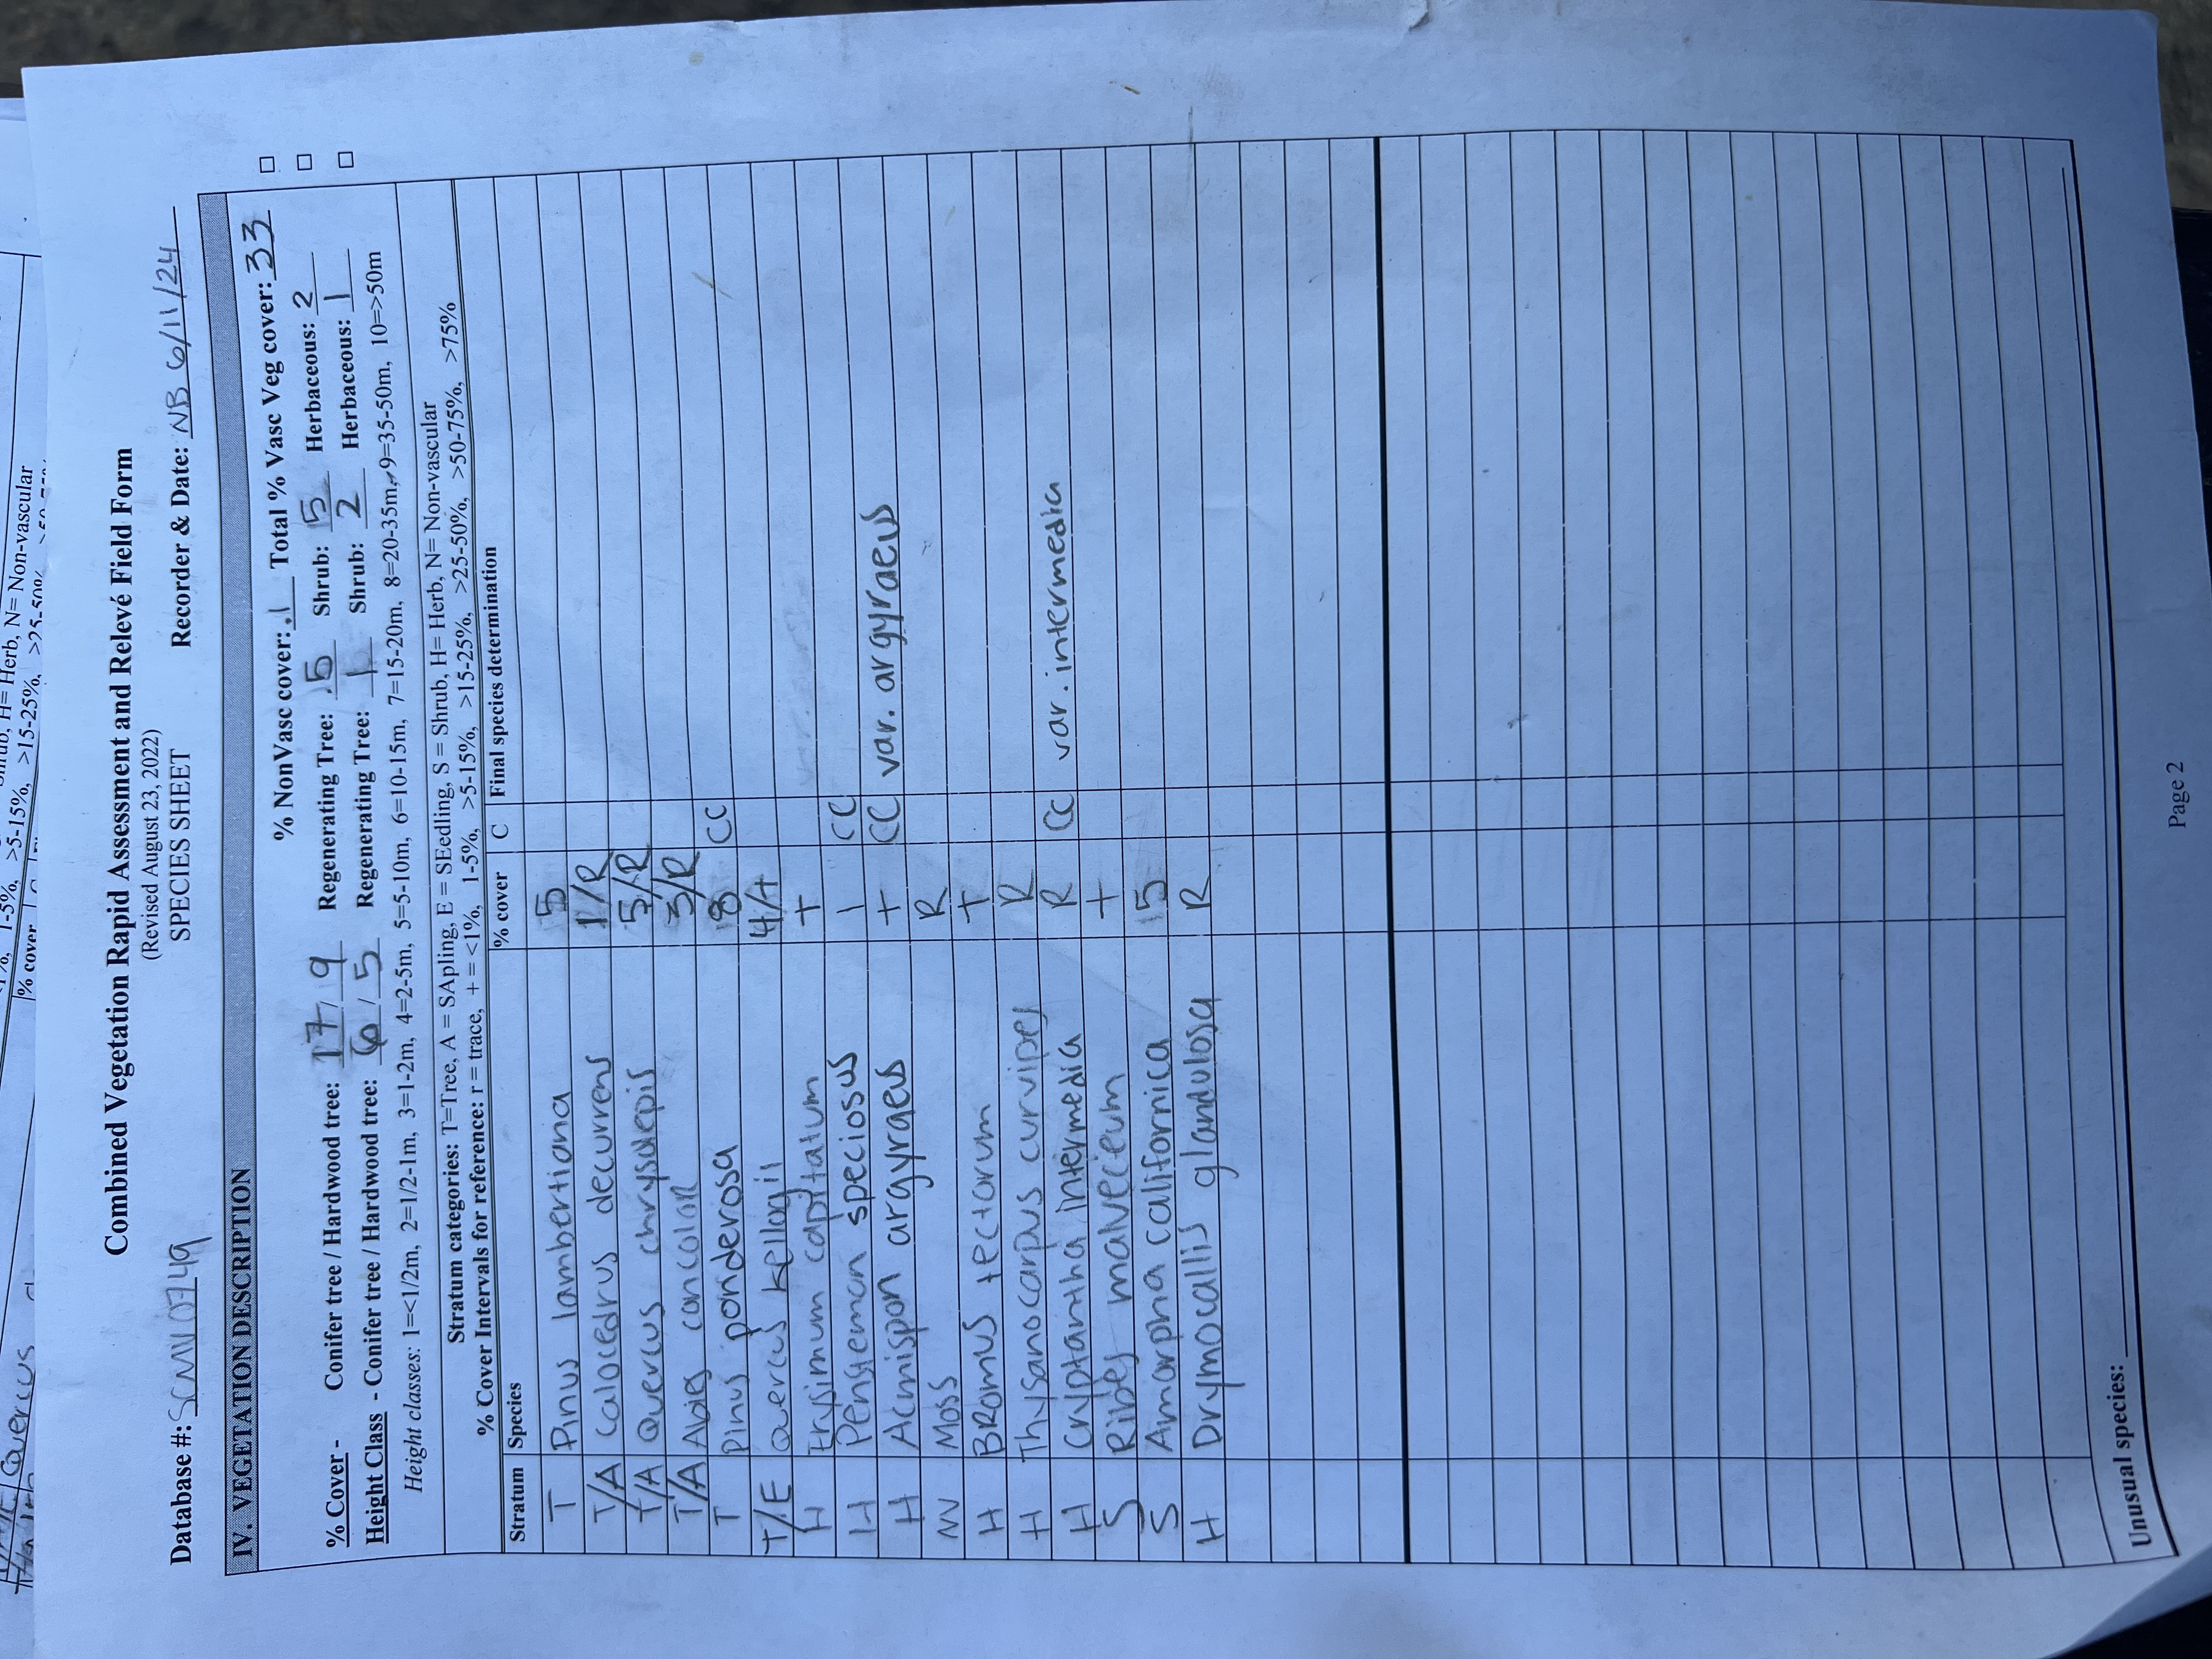 Combined Vegetation Rapid Assessment and Relevé Field Form
(Revised August 23, 2022)
SPECIES SHEET
Database #: SCMW0749 Recorder & Date: NB 6/11/24
IV. VEGETATION DESCRIPTION
% NonVasc cover: .1 Total % Vasc Veg cover: 33
% Cover - Conifer tree / Hardwood tree: 17 / 9 Regenerating Tree: .5 Shrub: 5 Herbaceous: 2
Height Class - Conifer tree / Hardwood tree: 6 / 5 Regenerating Tree: 1 Shrub: 2 Herbaceous: 1
Height classes: 1=<1/2m, 2=1/2-1m, 3=1-2m, 4=2-5m, 5=5-10m, 6=10-15m, 7=15-20m, 8=20-35m, 9=35-50m, 10=>50m
Stratum categories: T=Tree, A = SApling, E = SEedling, S = Shrub, H= Herb, N= Non-vascular
% Cover Intervals for reference: r = trace, + = <1%, 1-5%, >5-15%, >15-25%, >25-50%, >50-75%, >75%
Stratum Species % cover C Final species determination
T Pinus lambertiana 5
T/A Calocedrus decurrens 1/R
T/A Quercus chrysolepis 5/R
T/A Abies concolor 3/R
T Pinus ponderosa 8 CC
T/E Quercus kelloggii 4/+
H Erysimum capitatum +
H Penstemon speciosus 1 CC
H Acmispon argyraeus + CC var. argyraeus
N Moss R
H Bromus tectorum +
H Thysanocarpus curvipes R
H Cryptantha intermedia R CC var. intermedia
S Ribes malvaceum +
S Amorpha californica 5
H Drymocallis glandulosa R
Unusual species:
Page 2